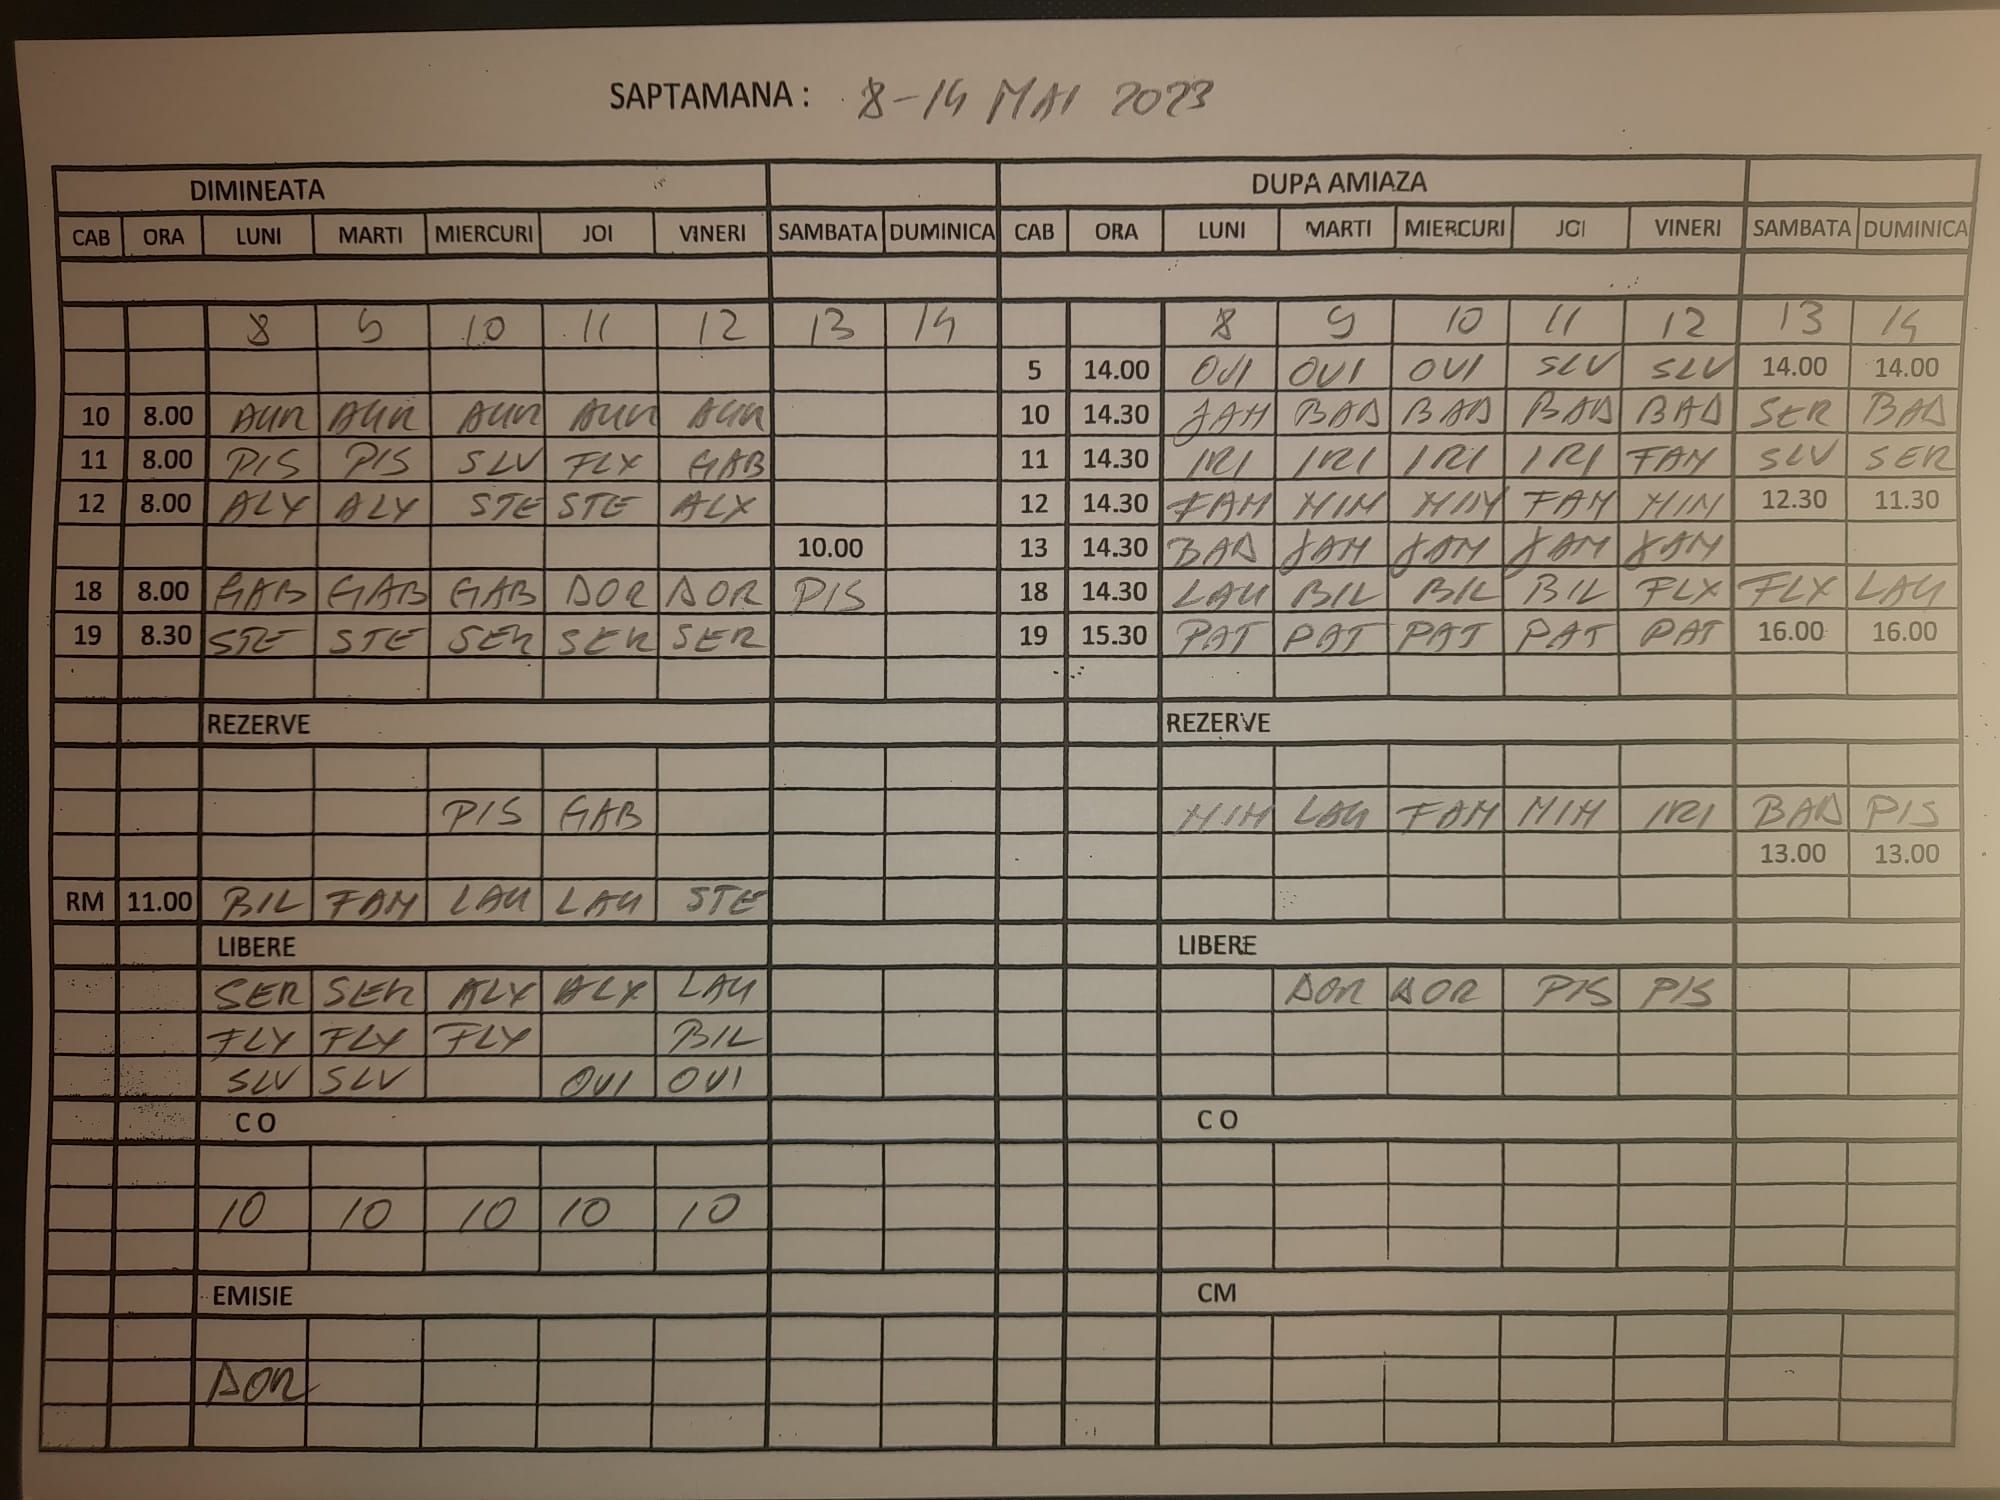 SAPTAMANA : 8-14 MAI 2023
DIMINEATA DUPA AMIAZA
CAB ORA LUNI MARTI MIERCURI JOI VINERI SAMBATA DUMINICA CAB ORA LUNI MARTI MIERCURI JOI VINERI SAMBATA DUMINICA
8 9 10 11 12 13 14 8 9 10 11 12 13 14
5 14.00 OVI OVI OVI SLV SLV 14.00 14.00
10 8.00 AUR AUR AUR AUR AUR 10 14.30 JAM BAD BAD BAD BAD SER BAD
11 8.00 PIS PIS SLV FLX GAB 11 14.30 IRI IRI IRI IRI FAM SLV SER
12 8.00 ALX ALX STE STE ALX 12 14.30 FAM MIH MIH FAM MIH 12.30 11.30
10.00 13 14.30 BAD JAM JAM JAM JAM
18 8.00 GAB GAB GAB DOR DOR PIS 18 14.30 LAU BIL BIL BIL FLX FLX LAU
19 8.30 STE STE SER SER SER 19 15.30 PAT PAT PAT PAT PAT 16.00 16.00
REZERVE REZERVE
PIS GAB MIH LAU FAM MIH IRI BAD PIS
13.00 13.00
RM 11.00 BIL FAM LAU LAU STE
LIBERE LIBERE
SER SER ALX ALX LAU DOR DOR PIS PIS
FLX FLX FLX BIL
SLV SLV OVI OVI
C O C O
10 10 10 10 10
EMISIE CM
DOR